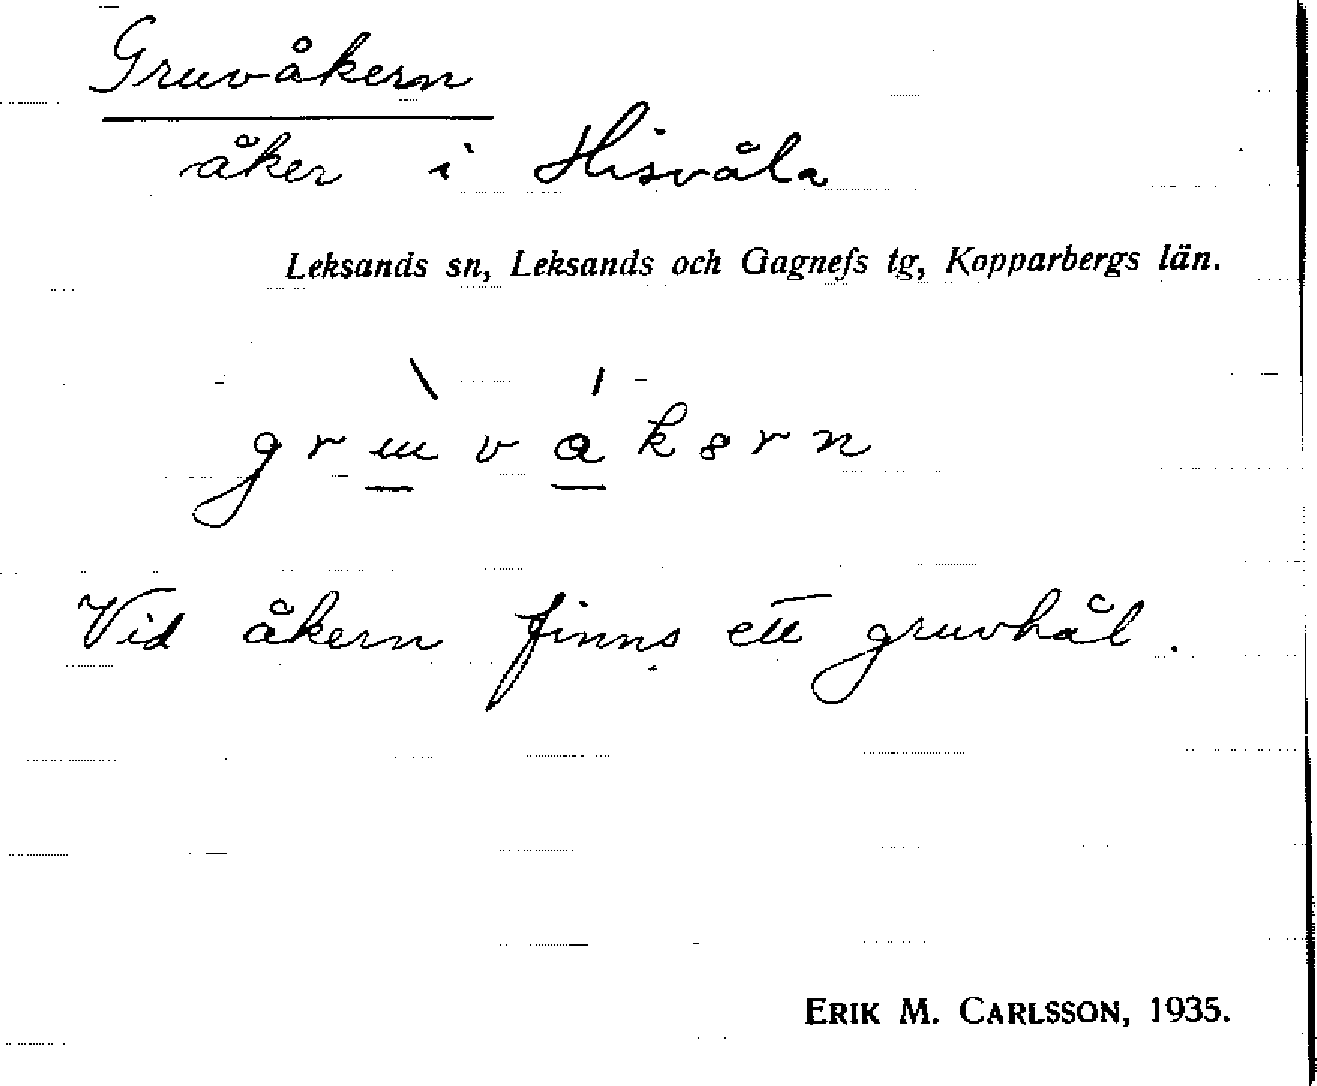 Gruvåkern
åker i Hisvåla
Leksands sn, Leksands och Gagnefs tg, Kopparbergs län.
Vid åkern finns ett gruvhål.
ERIK M. CARLSSON, 1935.